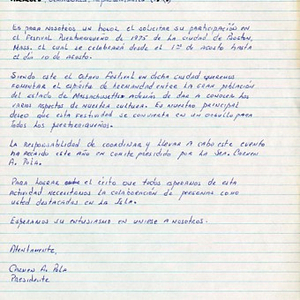 Es para nosotros un honor el solicitar su participación en
el Festival Puertorriqueño de 1975 de la ciudad de Boston,
Mass. el cual se celebrará desde el 1ro de agosto hasta
el día 10 de agosto.
Siendo este el Octavo Festival en dicha ciudad queremos
fomentar el espíritu de hermandad entre la gran población
del estado de Massachusetts además de dar a conocer los
varios aspectos de nuestra cultura. Es nuestro principal
deseo que esta festividad se convierta en un orgullo para
todos los puertorriqueños.
La responsabilidad de coordinar y llevar a cabo este evento
ha recaído este año en comité presidido por la Sra. Carmen
A. Pola.
Para lograr el éxito que todos esperamos de esta
actividad necesitamos la colaboración de personas como
usted destacadas en la Isla.
Esperamos su entusiasmo en unirse a nosotros.
Atentamente,
Carmen A. Pola
Presidente